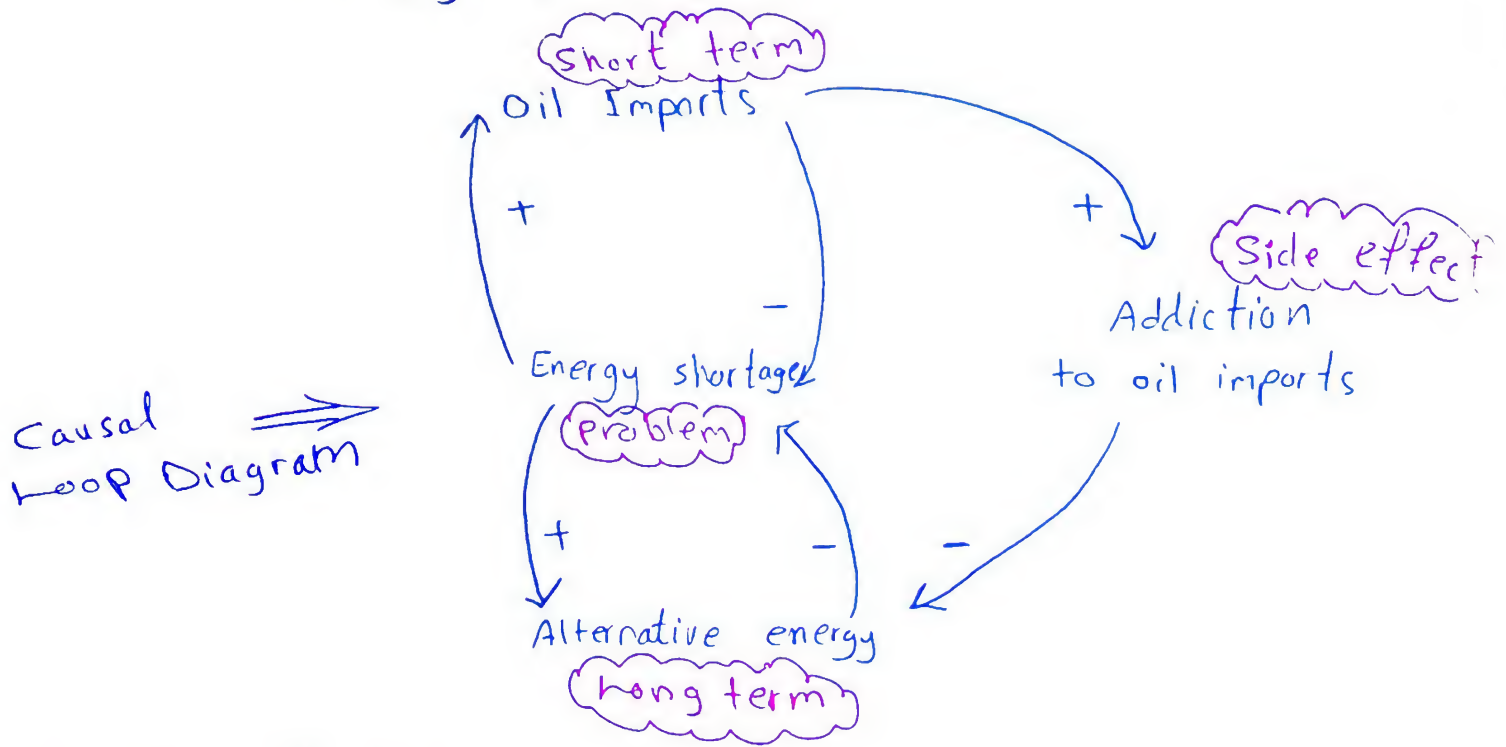 short term
Oil Imports
+
+
Side effect
-
Addiction
to oil imports
Energy shortage
Causal
Loop Diagram
problem
+
-
-
Alternative energy
Long term